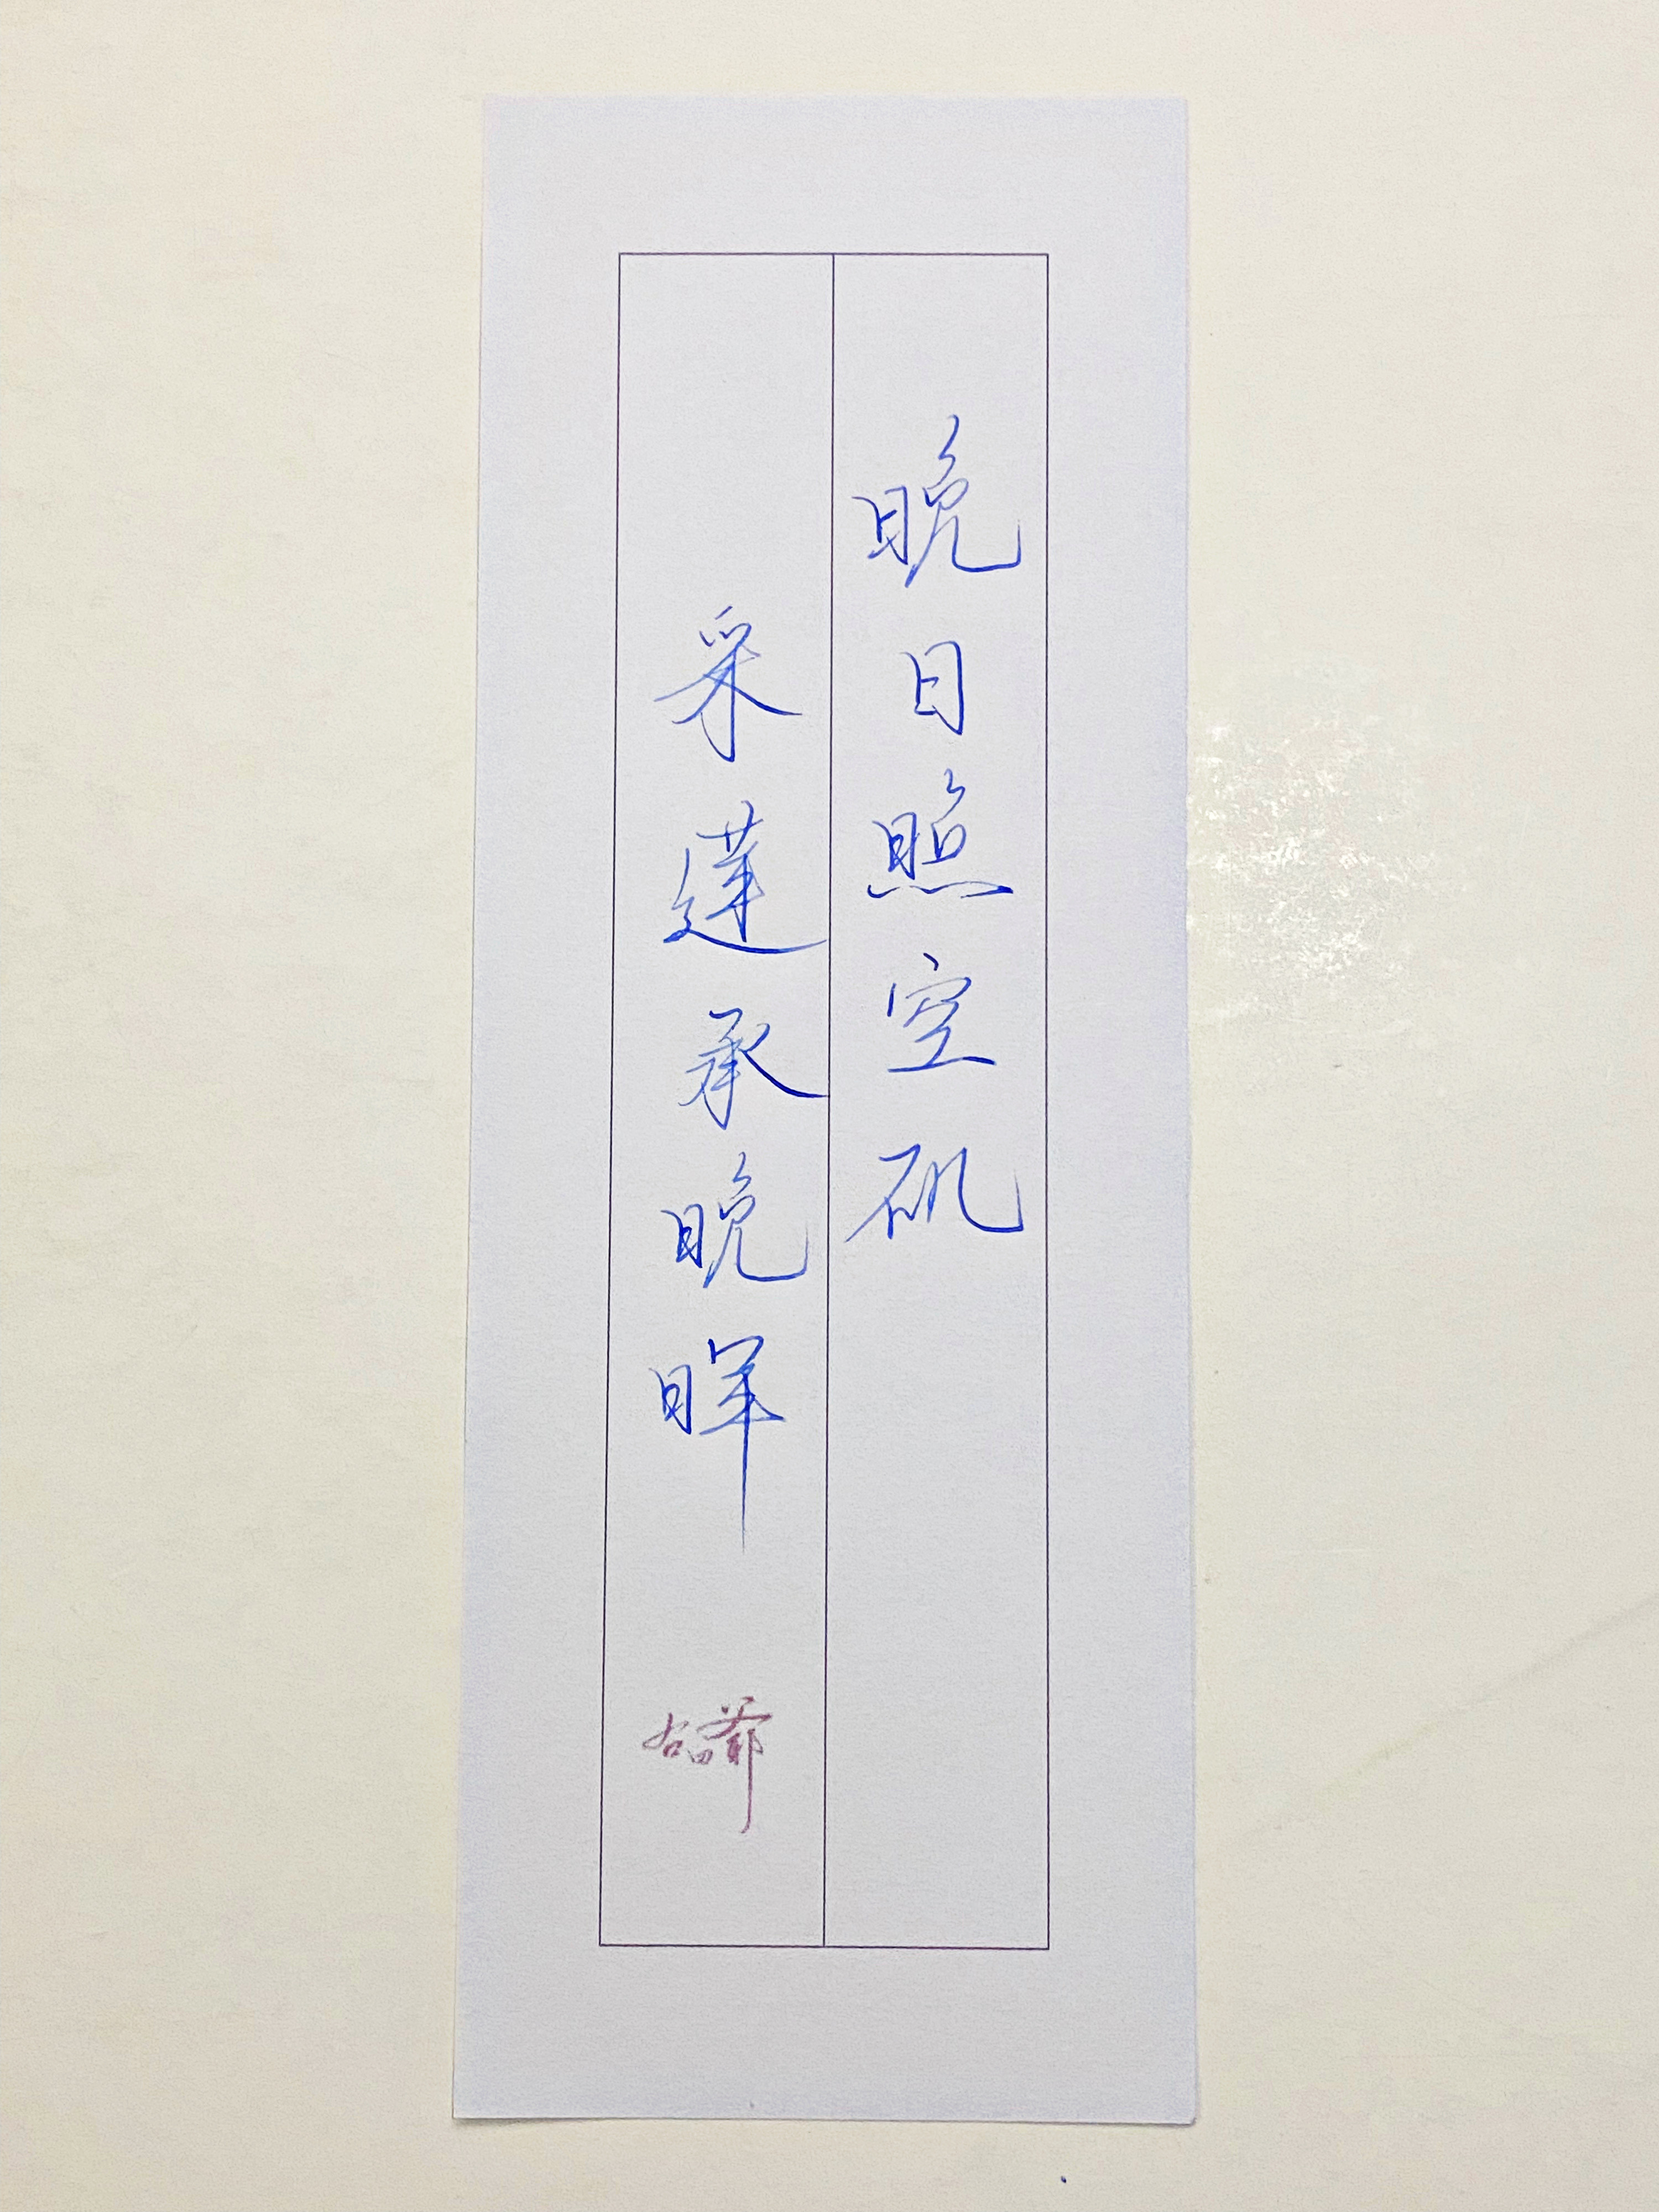 晚日照空矶
采莲承晚晖